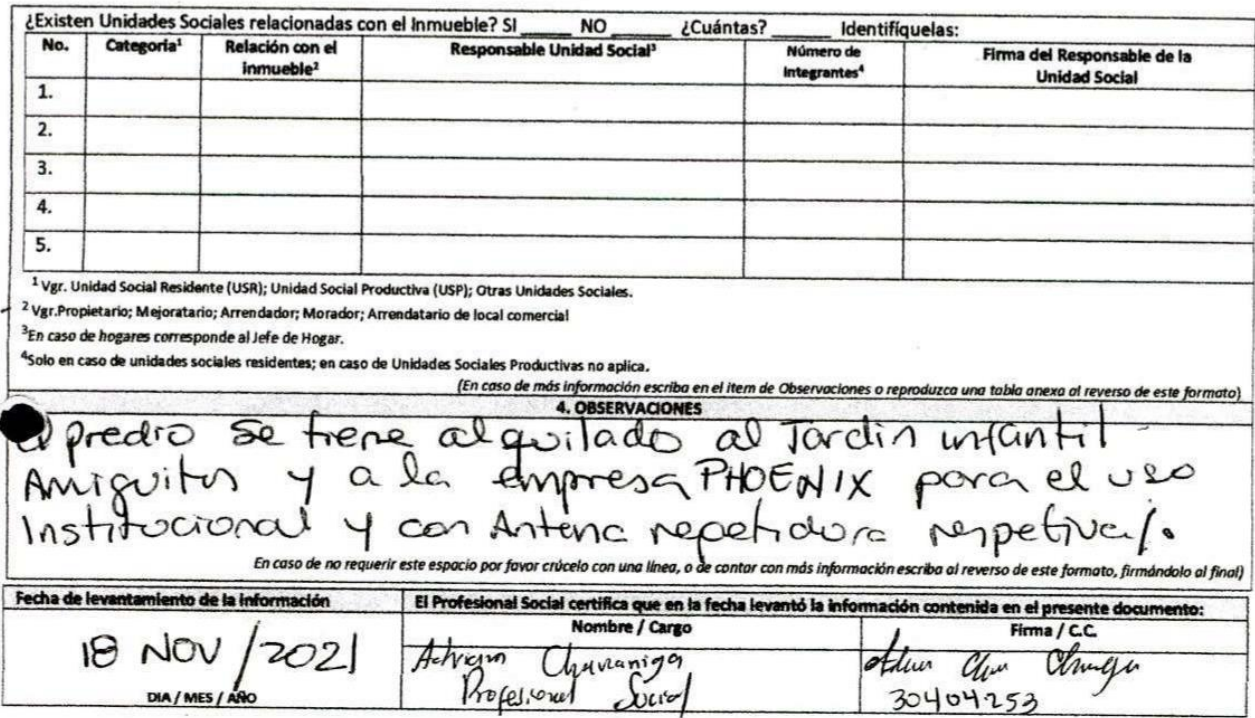 ¿Existen Unidades Sociales relacionadas con el Inmueble? SI _____ NO _____ ¿Cuántas? _____ Identifíquelas:
No. Categoría¹ Relación con el inmueble² Responsable Unidad Social³ Número de Integrantes⁴ Firma del Responsable de la Unidad Social
1.
2.
3.
4.
5.
¹ Vgr. Unidad Social Residente (USR); Unidad Social Productiva (USP); Otras Unidades Sociales.
² Vgr.Propietario; Mejoratario; Arrendador; Morador; Arrendatario de local comercial
³En caso de hogares corresponde al Jefe de Hogar.
⁴Solo en caso de unidades sociales residentes; en caso de Unidades Sociales Productivas no aplica.
(En caso de más información escriba en el item de Observaciones o reproduzca una tabla anexa al reverso de este formato)
4. OBSERVACIONES
El predio se tiene alquilado al Jardin infantil
Amiguitos y a la empresa PHOENIX para el uso
Institucional y con Antena repetidora respetiva/.
En caso de no requerir este espacio por favor crúcelo con una línea, o de contar con más información escriba al reverso de este formato, firmándolo al final)
Fecha de levantamiento de la información
El Profesional Social certifica que en la fecha levantó la información contenida en el presente documento:
Nombre / Cargo Firma / C.C.
18 NOV / 2021
DIA / MES / AÑO
Profesional Social
30404253